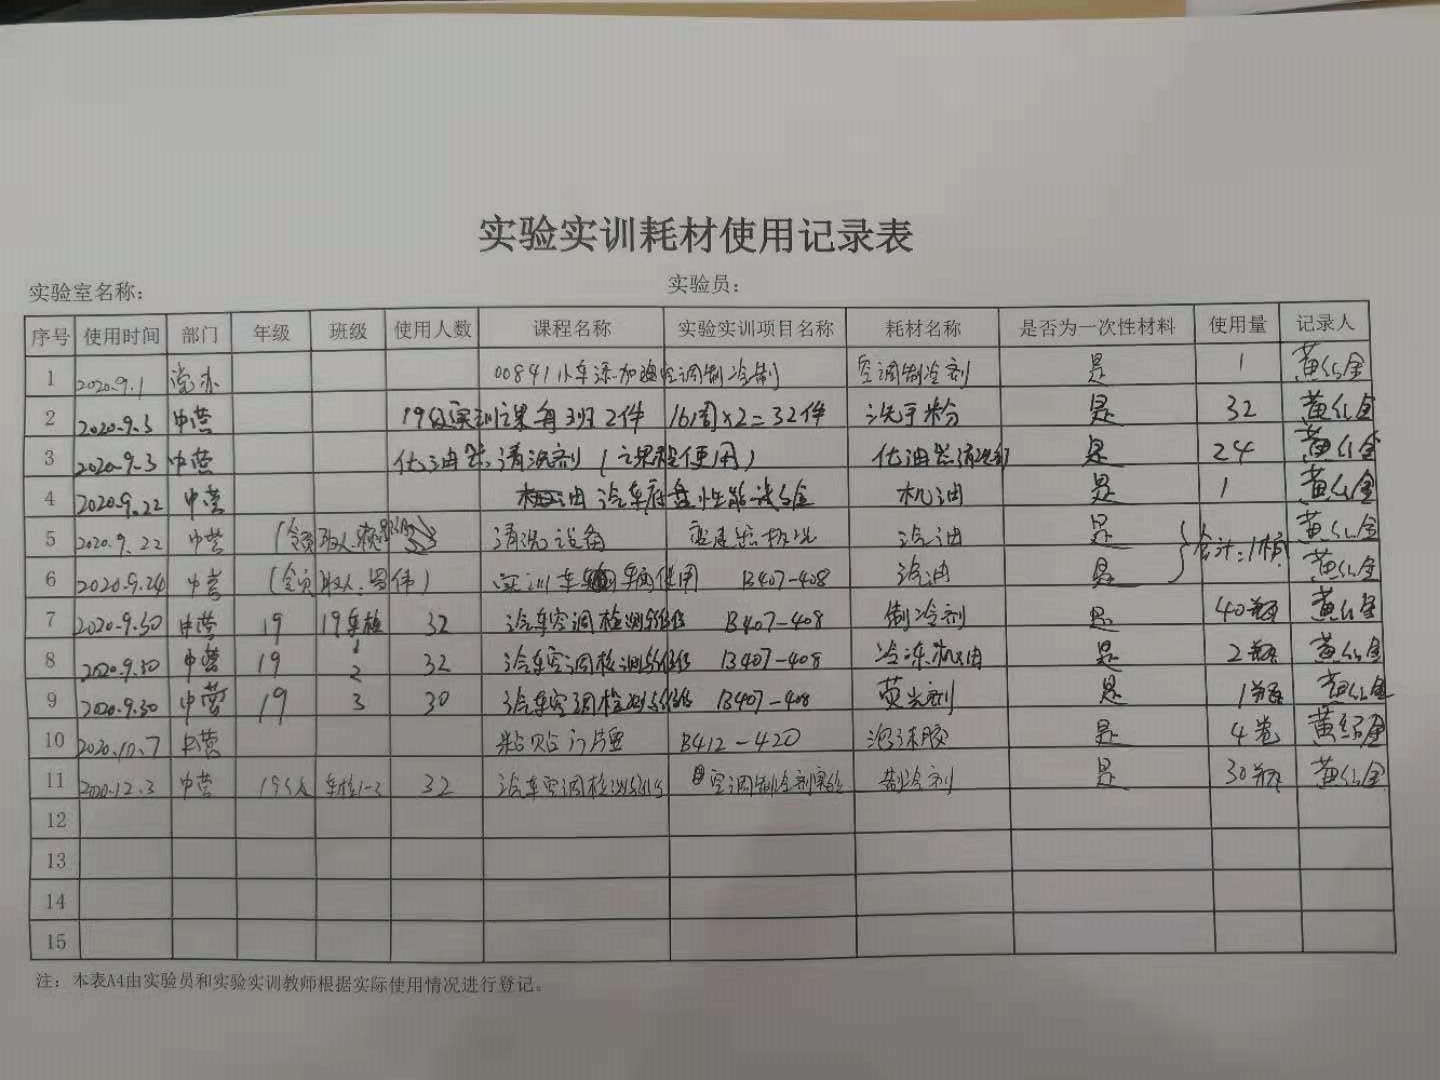 实验实训耗材使用记录表
实验室名称： 实验员：
序号 使用时间 部门 年级 班级 使用人数 课程名称 实验实训项目名称 耗材名称 是否为一次性材料 使用量 记录人
1 2020.9.1 党办 00841小车添加 空调制冷制 空调制冷剂 是 1
2 2020.9.3 中营 19级实训课每班2件 16周×2=32件 洗手粉 是 32
3 2020.9.3 中营 化油器清洗剂（课程使用） 化油器清洗剂 是 24
4 2020.9.22 中营 机油 汽车底盘性能 机油 是 1
5 2020.9.22 中营 清洗设备 汽油 是 合计：1桶
6 2020.9.24 中营 实训车 车辆使用 B407-408 汽油 是
7 2020.9.30 中营 19 19车检1 32 汽车空调检测与维修 B407-408 制冷剂 是 40瓶
8 2020.9.30 中营 19 2 32 汽车空调检测与维修 B407-408 冷冻机油 是 2瓶
9 2020.9.30 中营 19 3 30 汽车空调检测与维修 B407-408 荧光剂 是 1瓶
10 2020.10.7 中营 粘贴 B412-420 泡沫胶 是 4卷 黄绍金
11 2020.12.3 中营 19级 车检1-3 32 汽车空调检测与维修 空调制冷剂实验 制冷剂 是 30瓶
12
13
14
15
注：本表A4由实验员和实验实训教师根据实际使用情况进行登记。